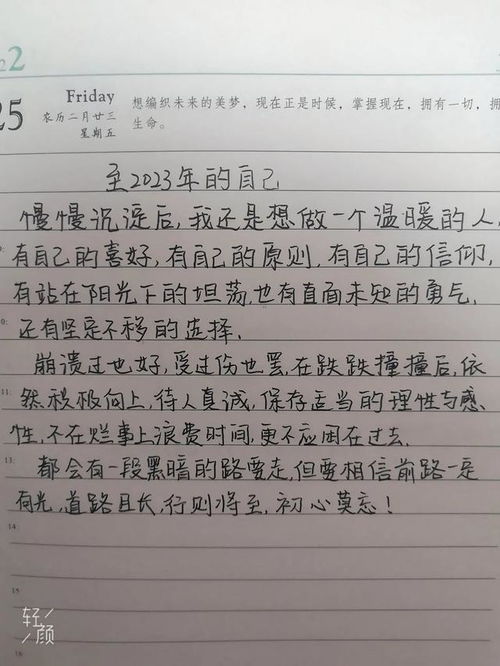 22
25
Friday
农历二月廿三
星期五
想编织未来的美梦，现在正是时候，掌握现在，拥有一切，拥
生命。
至2023年的自己
慢慢沉淀后，我还是想做一个温暖的人，
有自己的喜好，有自己的原则，有自己的信仰，
有站在阳光下的坦荡，也有直面未知的勇气，
还有坚定不移的选择.
崩溃过也好，受过伤也罢，在跌跌撞撞后，依
然积极向上，待人真诚，保存适当的理性与感
性，不在烂事上浪费时间，更不应困在过去.
都会有一段黑暗的路要走，但要相信前路一定
有光，道路且长，行则将至，初心莫忘！
10:
11:
13:
14
15
16
轻
颜